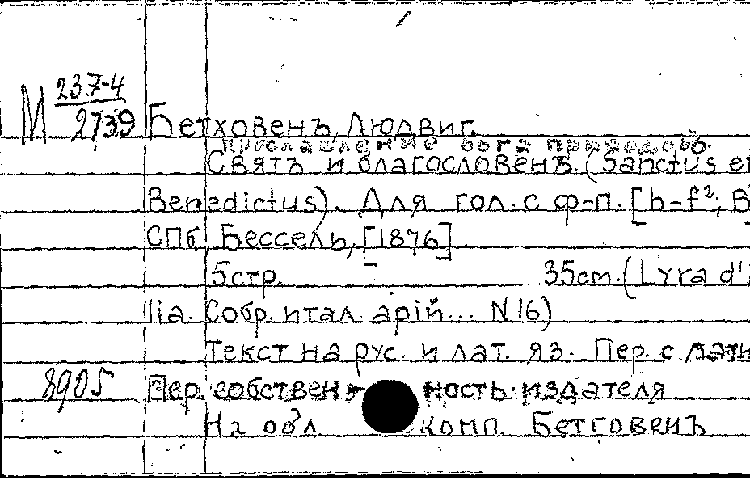 М 237-4/2739
Бетховенъ, Людвиг.
Прославление бога природой.
Святъ и благословенъ. (Sanctus e
Benedictus). Для гол. с ф-п. [h-f²; B
СПб. Бессель, [1876]
5 стр. 35cm. (Lyra d'
lia. Собр. итал. арій... N 16)
Текст на рус. и лат. яз. Пер. с лати
8905 Пер. собствен ность издателя
На обл. комп. Бетговенъ